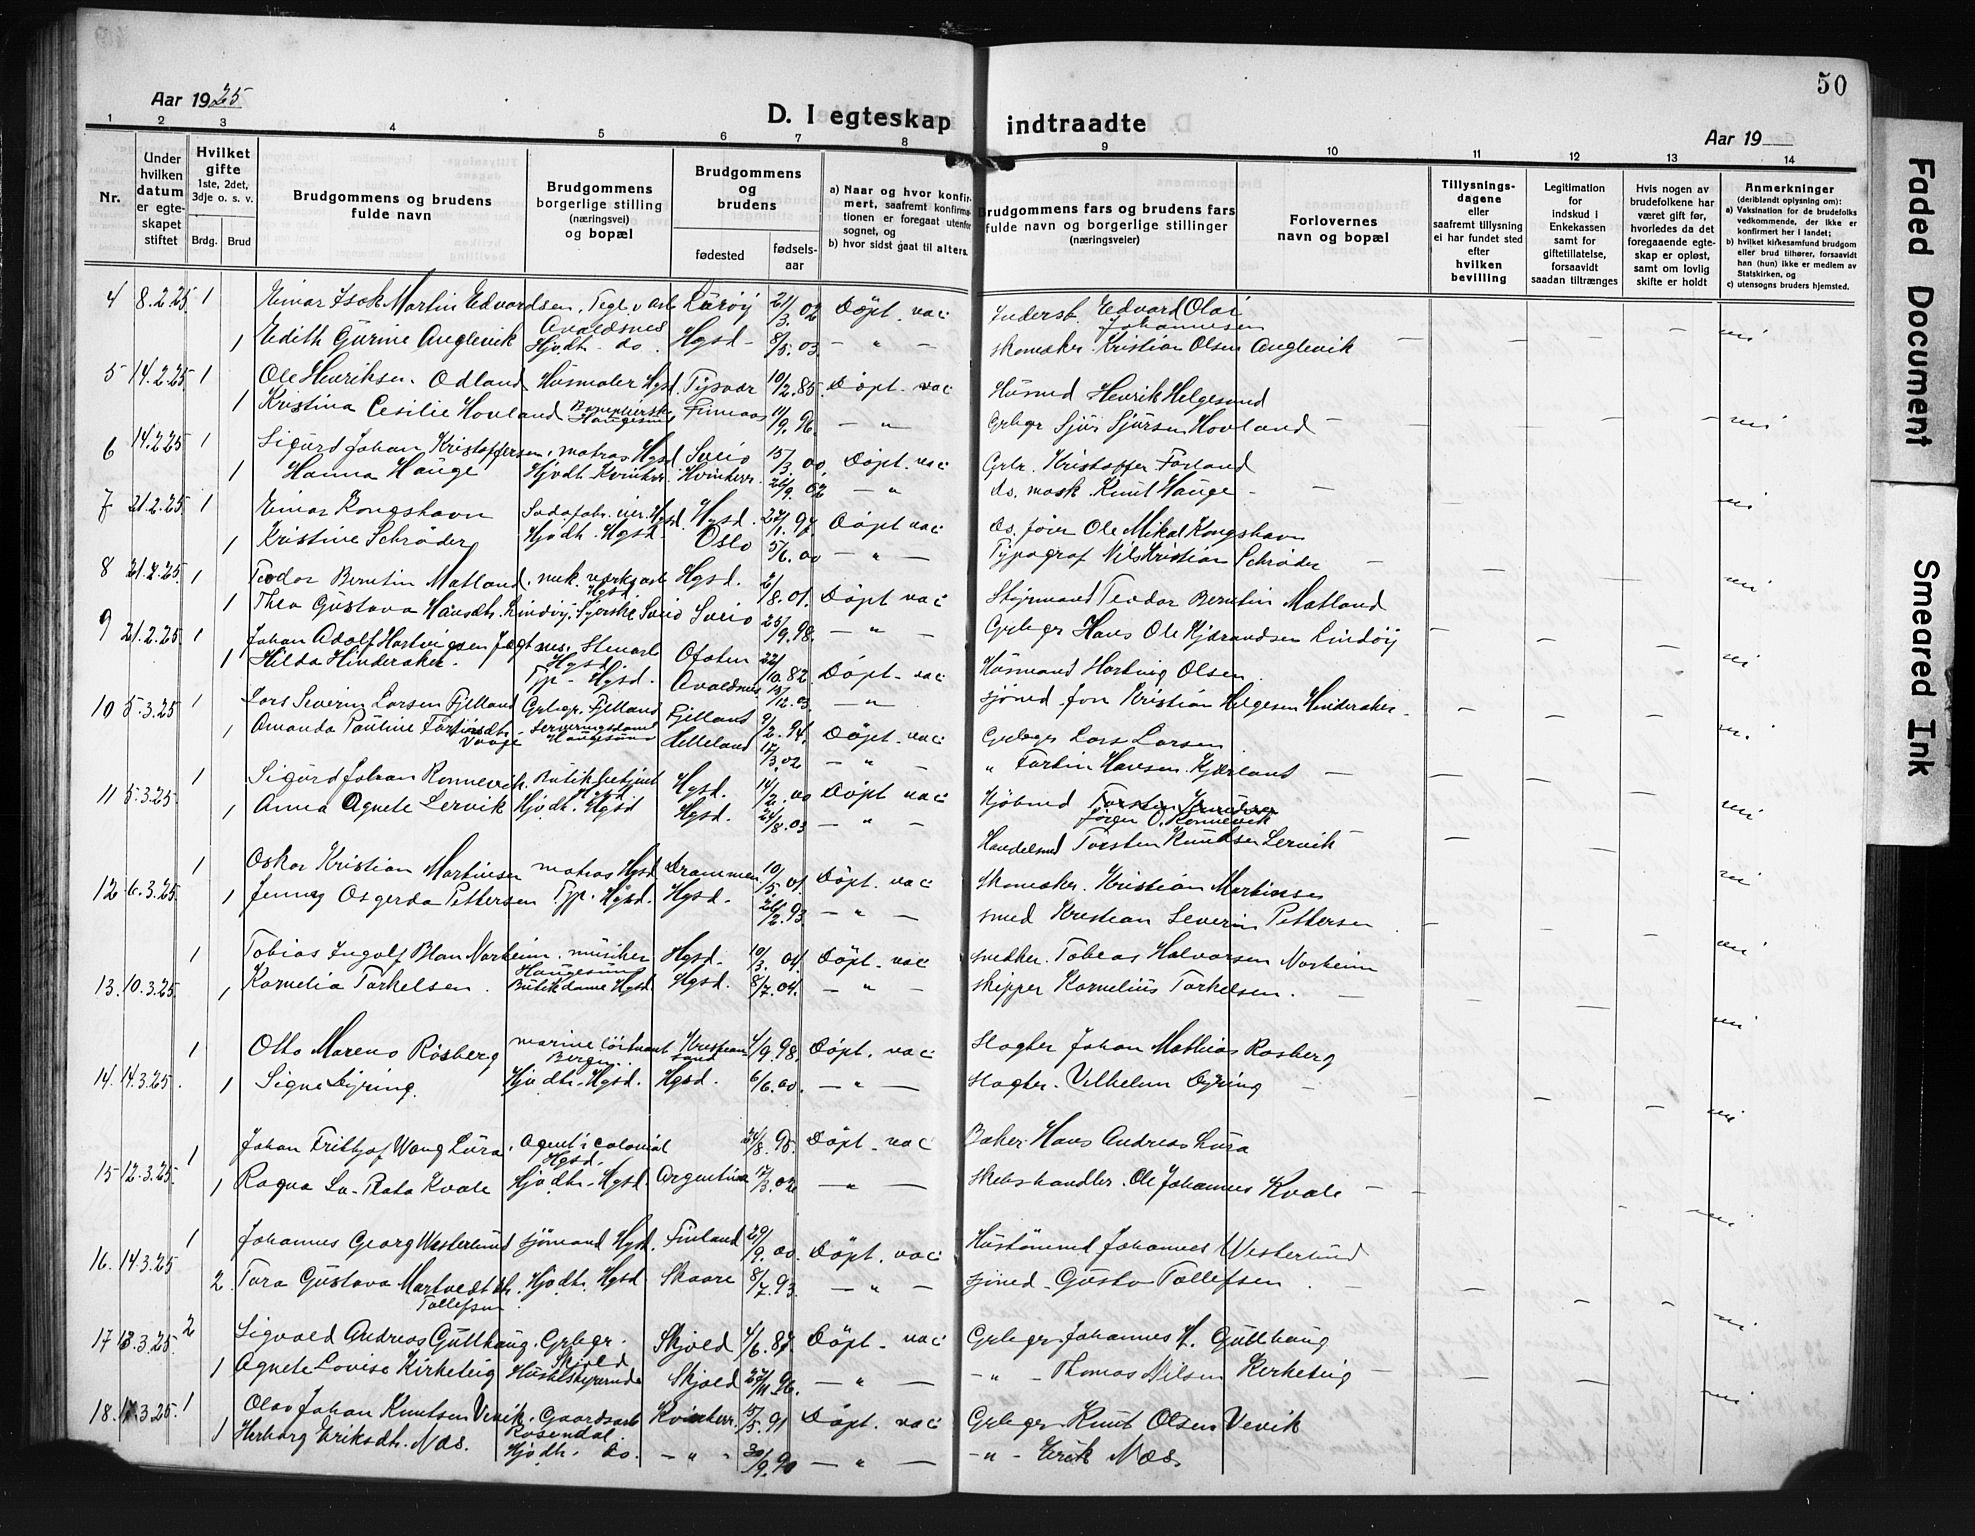 50
Aar 1925
D. I egteskap indtraadte
Aar 19
1 2 3 4 5 6 7 8 9 10 11 12 13 14
Nr.
Under hvilken datum er egteskapet stiftet
Hvilket gifte 1ste, 2det, 3dje o. s. v.
Brdg. Brud
Brudgommens og brudens fulde navn
Brudgommens borgerlige stilling (næringsvei) og bopæl
Brudgommens og brudens
fødested fødselsaar
a) Naar og hvor konfirmert, saafremt konfirmationen er foregaat utenfor sognet, og
b) hvor sidst gaat til alters.
Brudgommens fars og brudens fars fulde navn og borgerlige stillinger (næringsveier)
Forlovernes navn og bopæl
Tillysningsdagene eller saafremt tillysning ei har fundet sted efter hvilken bevilling
Legitimation for indskud i Enkekassen samt for giftetillatelse, forsaavidt saadan tiltrænges
Hvis nogen av brudefolkene har været gift før, hvorledes da det foregaaende egteskap er opløst, samt om lovlig skifte er holdt
Anmerkninger (deriblandt oplysning om):
a) Vaksination for de brudefolks vedkommende, der ikke er konfirmert her i landet;
b) hvilket kirkesamfund brudgom eller brud tilhører, forsaavidt han (hun) ikke er medlem av Statskirken, og
c) utensogns bruders hjemsted.
4 8.2.25 1 Einar Isak Martin Edvardsen, Lurøy 21/3.02 Døpt. vac Edvard Olai Johannesen
1 Edith Gurine Anglevik Avaldsnes Hjvdh. do. Hgsd. 8/5.03 — " — skomaker. Kristian Olsen Anglevik
5 14.2.25 1 Ole Henriksen Odland Husmaler Hgsd. Tysvær 10/2.85. Døpt. vac Husmd Henrik Helgesund
1 Kristina Cesilie Hovland Haugesund Finnaas 11/9.96 — " — Grbgr Sjur Sjursen Hovland
6 14.2.25 1 Sigurd Johan Kristoffersen, matros Hgsd Sveio 15/3.00. Døpt. vac Grbr. Kristoffer Førland
1 Hanna Hauge Hjvdh. Kvinher. Kvinherr. 26/9.02 — " ds. mask. Knut Hauge
7 21.2.25 1 Einar Kongshavn Hgsd. Hgsd. 24/1.97 Døpt vac Ds. fører Ole Mikal Kongshavn
1 Kristine Schrøder Hjvdh. Hgsd. Oslo 5/6.00 — " — Typograf Nils Kristian Schrøder
8 21.2.25 1 Teodor Berntin Matland, mek. værksarb Hgsd. Hgsd. 6/8.01. Døpt vac Styrmand Teodor Berntin Matland
1 Thea Gustava Hansdh. Lindøy. Sveio Sveio 25/9.98. — " — Grbgr Hans Ole Kjærandsen Lindøy
9 21.2.25 1 Johan Adolf Hartvigsen Stenarb Hgsd. Ofoten 22/10.82. Døpt. vac Husmand Hartvig Olsen
1 Hilda Hinderaker. Tjp. Hgsd. Avaldsnes 13/12.03. — " — sjømd. Jon Kristian Helgesen Hinderaker.
10 5.3.25 1 Lars Severin Larsen Fjelland Grbgr. Fjelland Fjelland 9/2.94. Døpt. vac Grbgr Lars Larsen
1 Amanda Pauline Tortinsdh. Vaage Serveringsdame Haugesund Helleland 17/3.02 — " — " Tortin Hansen Kjærland
11 5.3.25 1 Sigurd Johan Rønnevik. Butikbetjent Hgsd Hgsd. 14/2.00 Døpt vac Kjøbmd Jørgen O. Rønnevik
1 Anna Agnete Lervik Hjvdh. Hgsd Hgsd. 24/8.03 — " — Handelsmd Torsten Knudsen Lervik
12 6.3.25 1 Oskar Kristian Martinsen matros Hgsd Drammen 10/5.01 Døpt. vac skomaker. Kristian Martinsen
1 Jenny Osgerda Pettersen Tjp. Hgsd. Hgsd. 26/2.93. — " — smed Kristian Severin Pettersen
13. 10.3.25 1 Tobias Ingolf Blau Norheim. musiker Haugesund Hgsd. 10/3.04. Døpt. vac snedker. Tobias Halvorsen Norheim
1 Kornelia Torkelsen. Butikdame Hgsd. Hgsd. 8/7.04. — " — skipper Kornelius Torkelsen.
14. 14.3.25. 1 Otto Moreno Rosberg marine løitnant Bergen Kristiansund 4/9.98. Døpt. vac Slagter Johan Mathias Rosberg
1 Signe Dyring. Hjvdh. Hgsd. Hgsd. 6/6.00. — " — slagter. Vilhelm Dyring
15 12.3.25 1 Johan Fritjof Wang Lura. Agent i colonial Hgsd. 24/8.95. Døpt. vac Baker. Hans Andreas Lura
1 Ragna La-Plata Kvale Hjvdh. Hgsd. Argentina 17/3.02 — " — Skibshandler. Ole Johannes Kvale
16. 14.3.25 1 Johannes Georg Westerlund sjømand Hgsd. Finland 29/9.00. Døpt. vac Hustømmd Johannes Westerlund
2. Tora Gustava Mortvedt dh. Tollefsen Hjvdh. Hgsd. Skaare 8/7.93. — " — sjmd. Gustav Tollefsen
17 13.3.25. 2 Sigvald Andreas Gutthaug. Grbgr. Skjold Skjold 4/6.87. Døpt. vac Grbgr. Johannes H. Gutthaug
1 Agnete Lovise Kirketeig Husbestyrerinde Skjold 27/11.96. — " — — " — Thomas Nilsen Kirketeig
18. 17.3.25. 1 Olav Johan Knutsen Vevik. Gaardsarb Rosendal. Kvinherr. 15/5.91 Døpt. vac Grbgr Knut Olsen Vevik
1 Herborg Eriksdh. Næs. Hjvdh. do. — " — 30/9.90 — " — — " — Erik Næs.
Faded Document
Smeared Ink